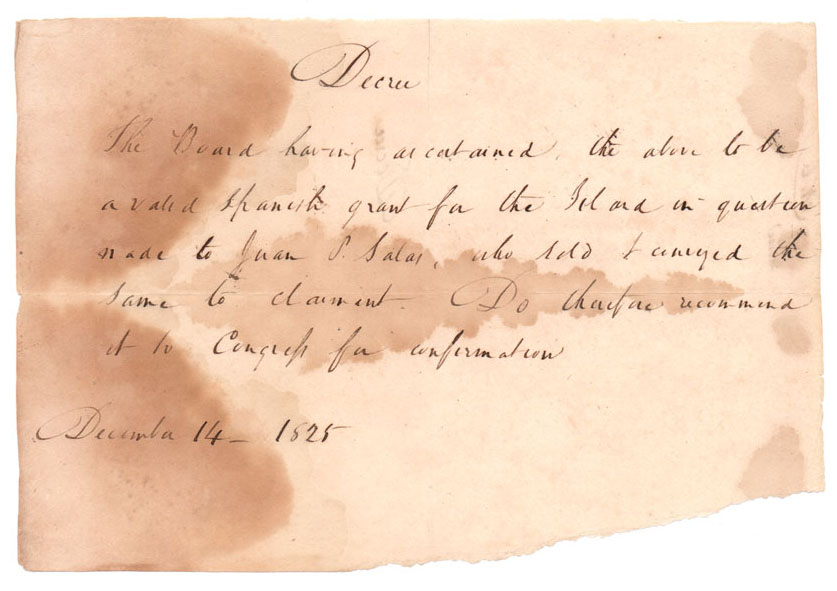 Decree
The Board having ascertained, the above to be
a valid Spanish grant for the Island in question
made to Juan P. Salas, who sold & conveyed the
same to claiment. Do therefore recommend
it to Congress for confirmation
December 14 - 1825